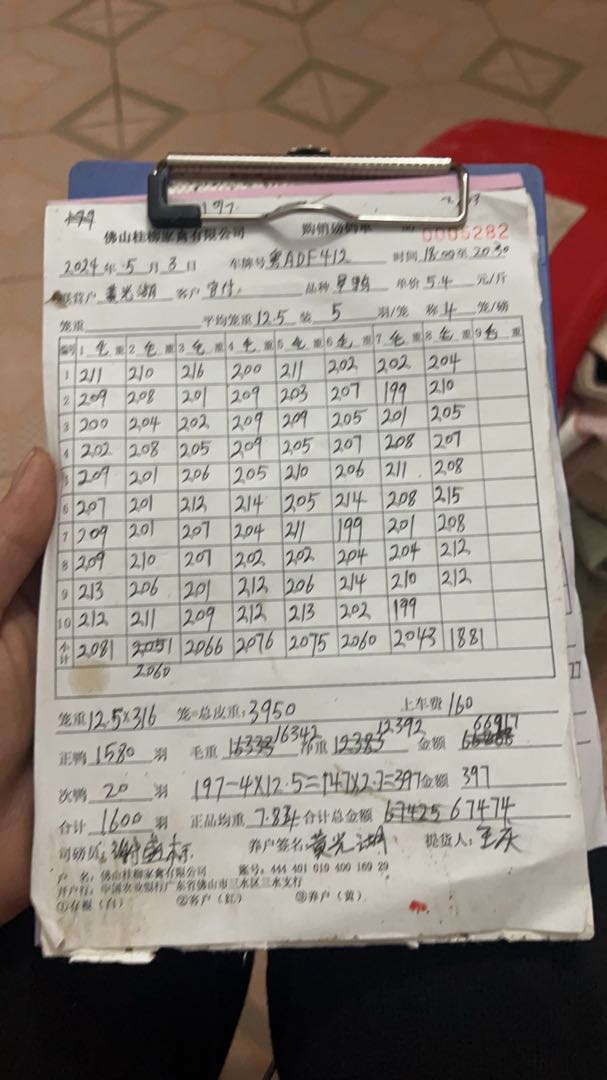 197
佛山桂柳家禽有限公司 购销磅码单 0005282
2024年5月3日 车牌号粤ADF412 时间18:00至20:30
黄光湖 客户 品种 单价5.4元/斤
笼重 平均笼重12.5 装5羽/笼 称4笼/磅
编号 1毛重 2毛重 3毛重 4毛重 5毛重 6毛重 7毛重 8毛重 9毛重
1 211 210 216 200 211 202 202 204
2 209 208 201 209 203 207 199 210
3 200 204 202 209 209 205 201 205
4 202 208 205 209 205 207 208 207
5 209 201 206 205 210 206 211 208
6 207 201 212 214 205 214 208 215
7 209 201 207 204 211 199 201 208
8 209 210 207 202 202 204 204 212
9 213 206 201 212 206 214 210 212
10 212 211 209 212 213 202 199
小计 2081 2051 2066 2076 2075 2060 2043 1881
2060
笼重12.5×316 笼=总皮重:3950 上车费160
正鸭1580羽 毛重16333 16342 净重12383 12392 金额 66917
次鸭20羽 197-4×12.5=147×2.7=397金额 397
合计1600羽 正品均重7.84 合计总金额67425 67474
司磅员: 养户签名:黄光湖 提货人:
户名:佛山桂柳家禽有限公司 账号:444 401 010 400 169 29
开户行:中国农业银行广东省佛山市三水区三水支行
①存根(白) ②客户(红) ③养户(黄)